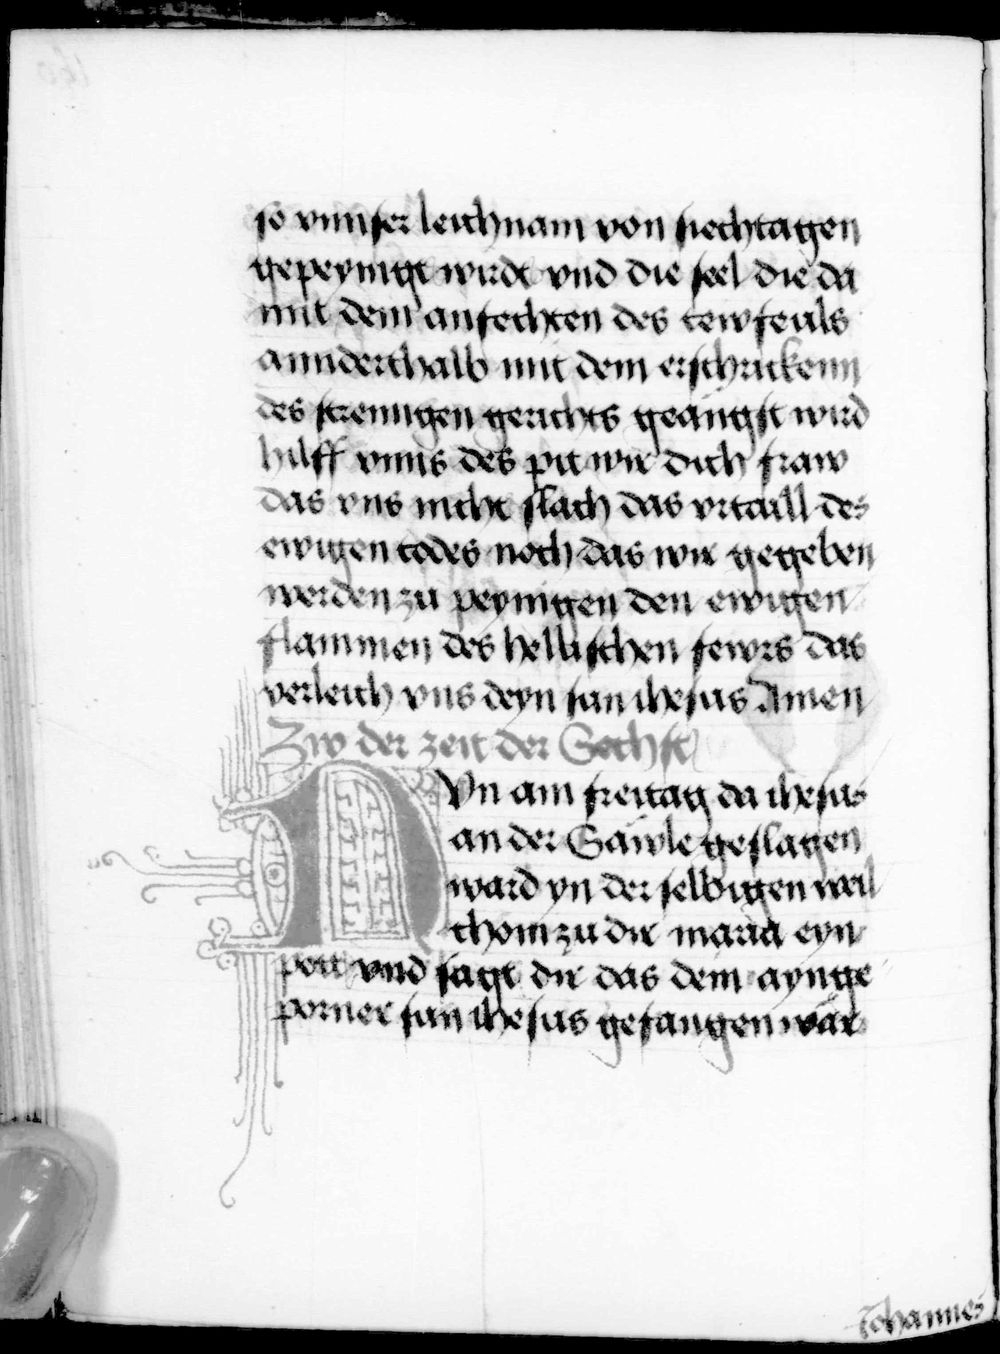 so vnnser leichnam von siechtagen
gepeynigt wirdt vnd die seel die da
mit dem anfechten des tewfeuls
annderthalb mit dem erschrickenn
des strenngen gerichts geängst wird
hilff vnns des pit wir dich fraw
das vns nicht slach das vrtaill des
ewigen todes noch das wir gegeben
werden zu peynigen den ewigen
flammen des hellischen fewrs das
verleich vns deyn sun ihesus Amen
Zw der zeit der Sechst
NVn am freitag da ihesus
an der Säwle geslagen
ward yn der selbigen weil
chom zu dir maria eyn
pott vnd sagt dir das dem aynge
porner sun ihesus gefangen wär
Johannes